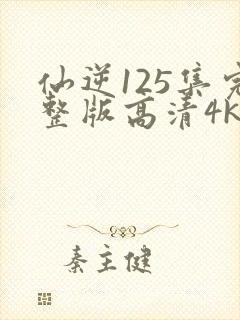 仙逆125集完
整版高清4K
秦主健